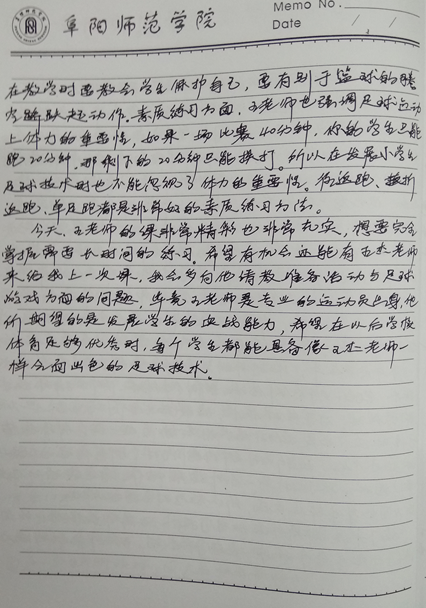 阜阳师范学院
Memo No.
Date / /
在教学时要教会学生保护自己，要有别于篮球的腾
空跳跃起动作。素质练习方面，王老师也强调足球运动
上体力的重要性，如果一场比赛40分钟，你的学生只能
跑20分钟，那剩下的20分钟只能挨打。所以在发展小学生
足球技术时也不能忽视了体力的重要性。往返跑、接折
返跑、单足跑都是非常好的素质练习方法。
今天，王老师的课非常精彩也非常充实，想要完全
掌握需要长时间的练习。希望有机会还能有王杰老师
来给我上一次课，我会多向他请教准备活动与足球
游戏方面的问题，毕竟王老师是专业的运动员上课他
们期望的是发展学生的实战能力，希望在以后学校
体育足够优秀时，每个学生都能具备像王杰老师一
样全面出色的足球技术。